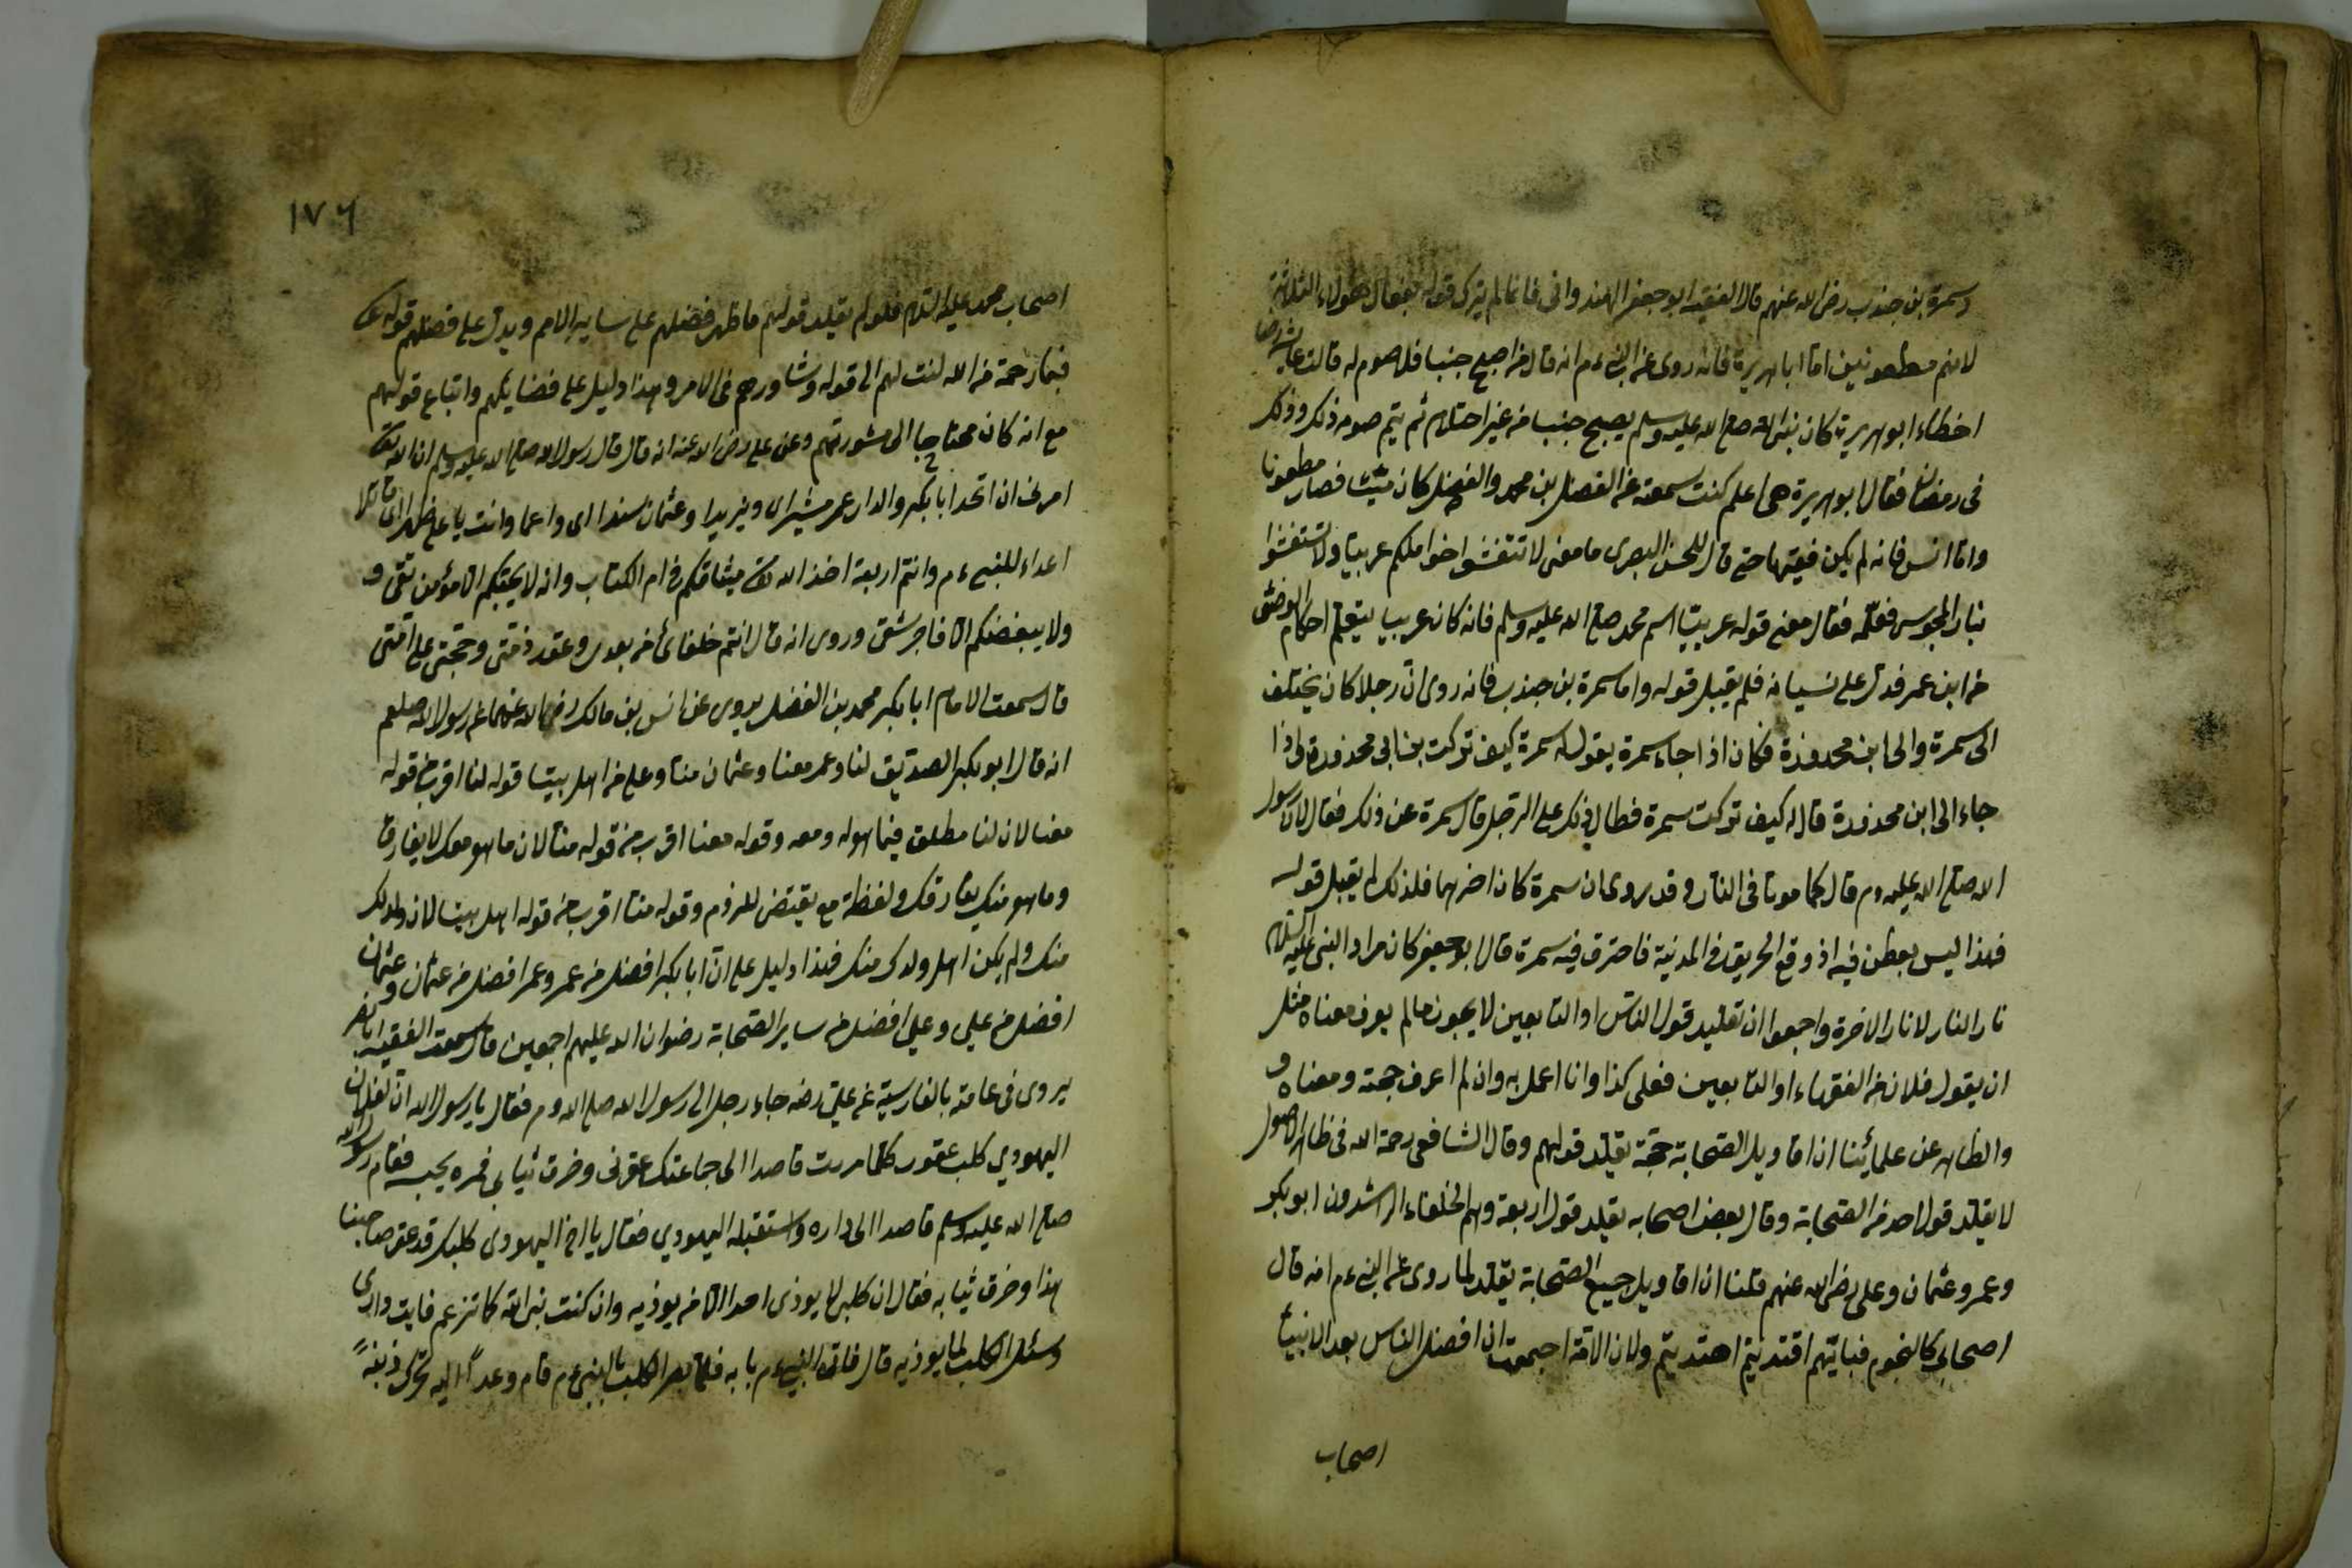 وسمرة بن جندب رضي الله عنهم قال الفقيه ابو جعفر الهندواني فانما لم يترك قوله بفعال هؤلاء الثلاثة
لانهم مطعونين اما ابا هريرة فانه روى عن النبي عم انه قال من اصبح جنبا فلا صوم له قالت عايشة رضها
اخطاء ابو هريرة كان نبي الله صلى الله عليه وسلم يصبح جنبا من غير احتلام ثم يتم صومه ذلك وذلك
في رمضان فقال ابو هريرة هي اعلم كنت سمعته عن الفضل بن محمد والفضل كان ميتا فصار مطعونا
واما انس فانه لم يكن فقيها حتى قال للحسن البصري ما معنى لا تنقشوا خواتمكم عربيا ولا تستضيئوا
بنار المجوس فعلمه فقال معنى قوله عربيا اسم محمد صلى الله عليه وسلم فانه كان عربيا يتعلم احكام الوضوء
من ابن عمر فدل على نسيانه فلم يقبل قوله واما سمرة بن جندب فانه روى ان رجلا كان يختلف
الى سمرة والى ابن محذورة فكان اذا جاء سمرة يقول له سمرة كيف تركت بن ابي محذورة واذا
جاء الى ابن محذورة قال له كيف تركت سمرة فطال ذلك على الرجل قال سمرة عن ذلك فقال لان رسول
الله صلى الله عليه وم قال كما موتا في النار وقد روى ان سمرة كان اخرهما فلذلك لم يقبل قوله
فهذا ليس بطعن فيه اذ وقع الحريق في المدينة فاحترق فيه سمرة قال ابو جعفر كان مراد النبي عليه السلام
نار النار لا نار الاخرة واجمعوا ان تقليد قول الناس او التابعين لا يجوز ما لم يعرف معناه مثل
ان يقول فلان من الفقهاء او التابعين فعل كذا وانا اعمل به وان لم اعرف حجته ومعناه و
والظاهر عن علمائنا ان اقاويل الصحابة حجة تقلد قولهم وقال الشافعي رحمة الله في ظاهر الاصول
لا يقلد قول احد من الصحابة وقال بعض اصحابه يقلد قول اربعة وهم الخلفاء الراشدون ابو بكر
وعمر وعثمان وعلي رضي الله عنهم قلنا ان اقاويل جميع الصحابة يقلد لما روى عن النبي عم انه قال
اصحابي كالنجوم فبايهم اقتديتم اهتديتم ولان الامة اجمعت ان افضل الناس بعد الانبياء
اصحاب
١٧٦
اصحاب محمد عليه السلام فلو لم يقلد قولهم ما ظهر فضلهم على ساير الامم ويدل على فضلهم قوله تع
فبما رحمة من الله لنت لهم الى قوله وشاورهم في الامر وهذا دليل على فضايلهم واتباع قولهم
مع انه كان محتاجا الى مشورتهم وعن علي رضي الله عنه انه قال قال رسول الله صلى الله عليه وسلم ان الله تع
امرني ان اتخذ ابا بكر والدا وعمر مشيرا ووزيرا وعثمان سندا وانت يا علي ظهرا
اعداء للنبي عم وانتم اربعة اخذ الله تع ميثاقكم في ام الكتاب وانه لا يحبكم الا مؤمن تقى و
ولا يبغضكم الا فاجر شقى وروى انه قال انتم خلفائي من بعدي وعقد ذمتي وحجتي على امتي
قال سمعت الامام ابا بكر محمد بن الفضل يروى عن انس بن مالك رضي الله عنهما عن رسول الله صلعم
انه قال ابو بكر الصديق لنا وعمر معنا وعثمان منا وعلي من اهل بيتنا قوله لنا اقرب من قوله
معنا لان لنا مطلق فيما هو له ومعه وقوله معنا اقرب من قوله منا لان ما هو معك لا يفارق
وما هو منك يفارقك ولفظة مع يقتضى للزوم وقوله منا اقرب من قوله اهل بيتنا لان ولدك
منك ولم يكن اهل ولدك منك فهذا دليل على ان ابا بكر افضل من عمر وعمر افضل من عثمان وعثمان
افضل من علي وعلي افضل من ساير الصحابة رضوان الله عليهم اجمعين قال سمعت الفقيه ابا نصر
يروى في عامته بالفارسية عن علي رضه جاء رجل الى رسول الله صلى الله وم فقال يا رسول الله ان لفلان
اليهودي كلب عقور كلما مررت قاصدا الى جماعتك عقرني وخرق ثيابي فمره يحبسه فقام رسول الله
صلى الله عليه وسلم قاصدا الى داره واستقبله اليهودي فقال يا اخ اليهودي كلبك قد عقر صاحبنا
هذا وخرق ثيابه فقال ان كلبي لا يوذى احدا الا من يوذيه وان كنت نبي الله كما تزعم فايت داري
وسئل الكلب لما يوذيه قال فاتى النبي عم بابه فلما بصر الكلب بالنبي عم قام وعدا اليه تحرك ذنبه